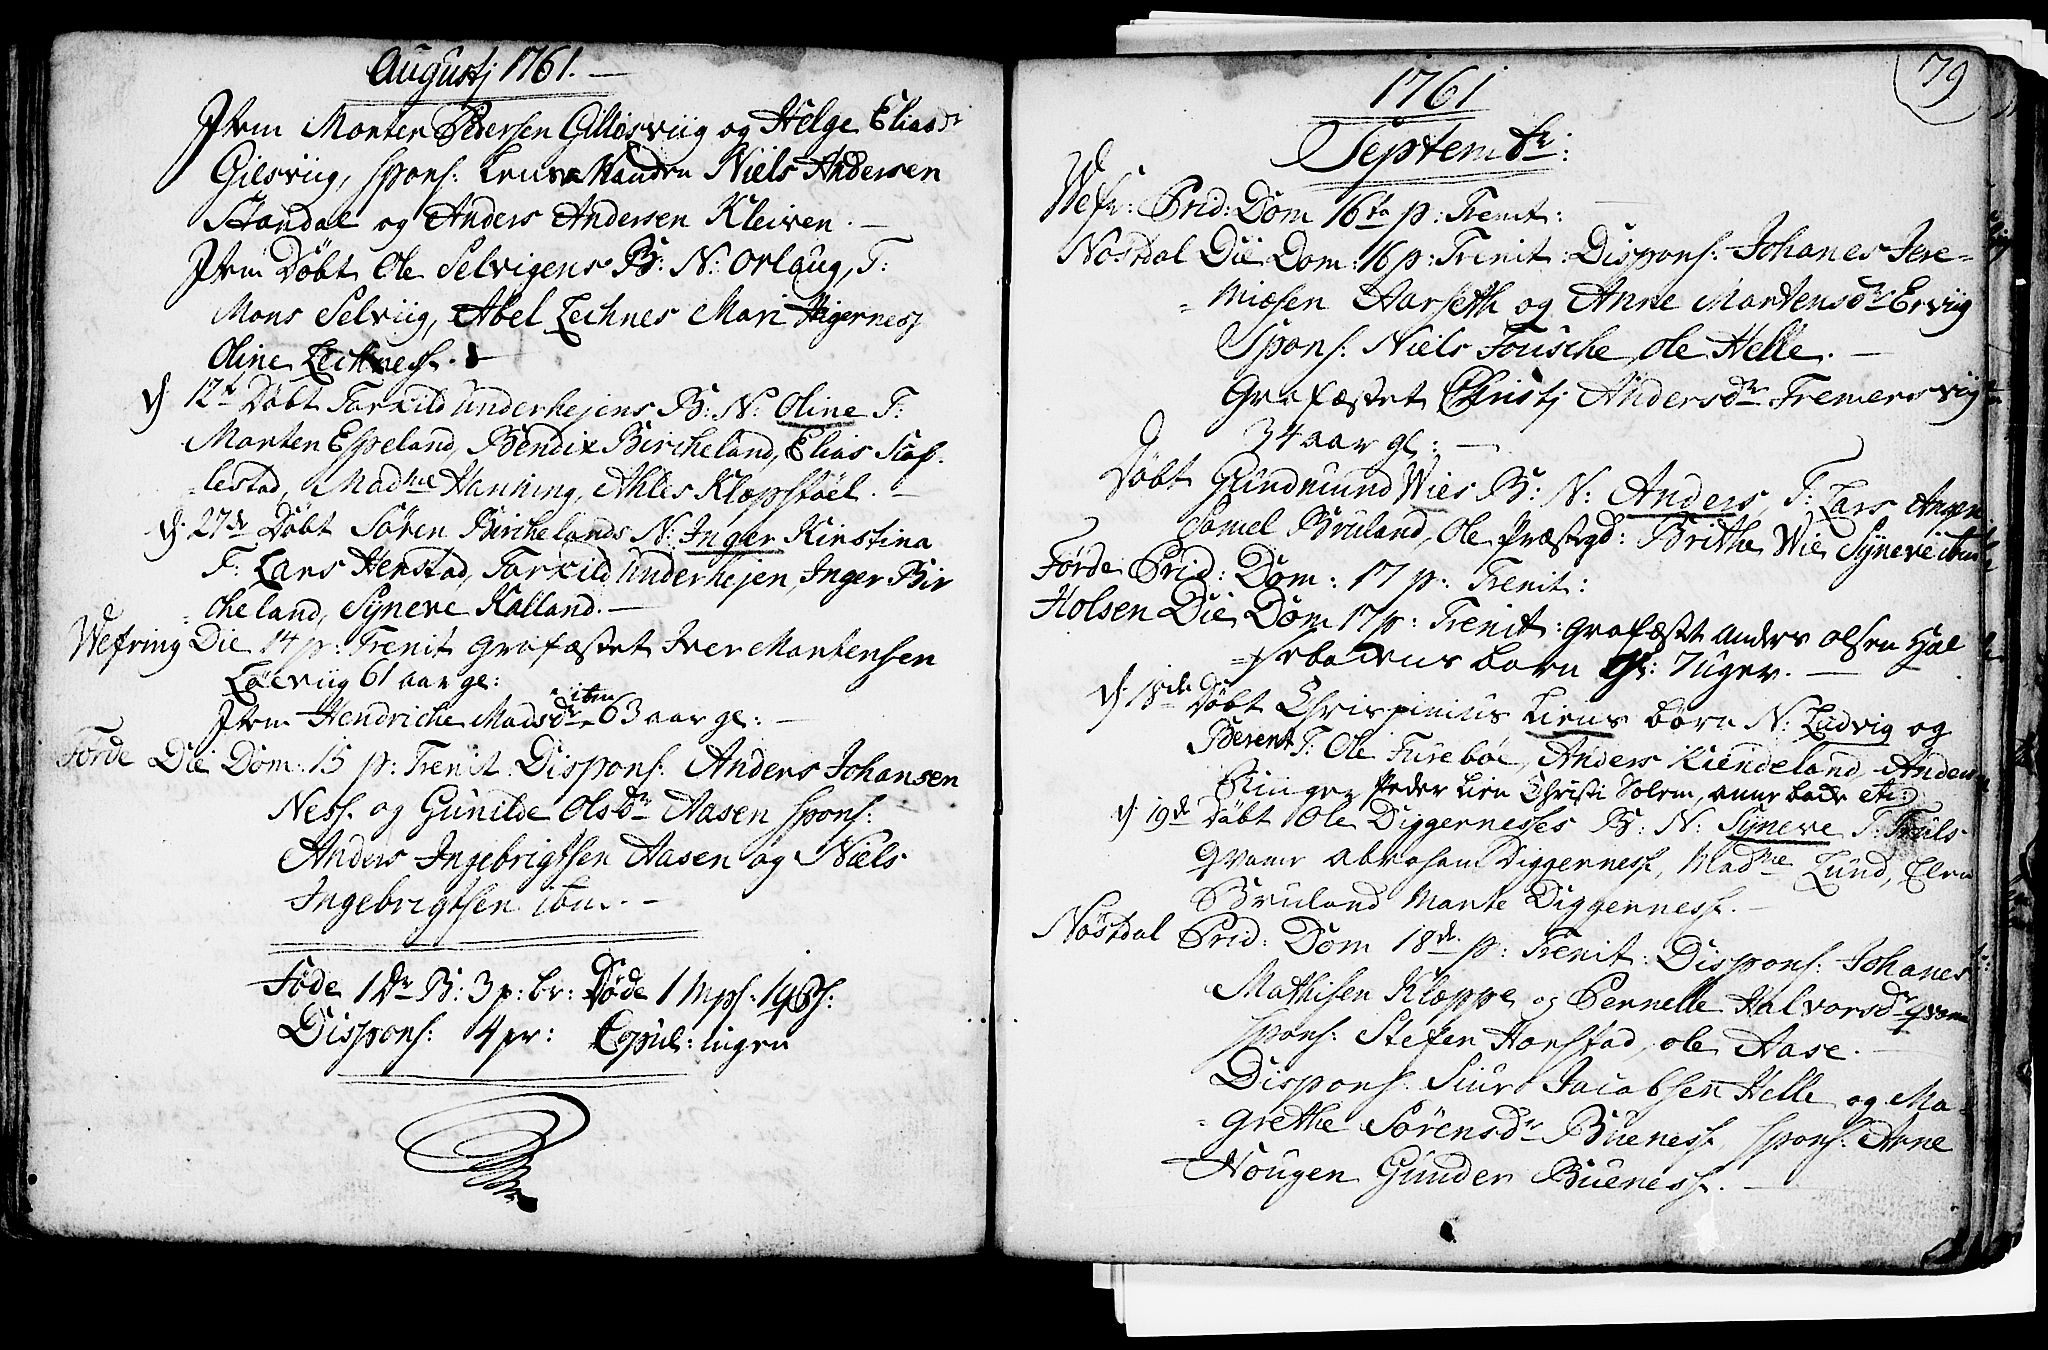 Augustj 1761.
Jtem Morten Pedersen Gilløsviig og Helge Eliasdr
Gilsviig, spons: Lens Manden Niels Andersen
Standal og Anders Andersen Kleiven.
Jtem Døbt Ole Selvigens B: N: Orlaug, T:
Mons Selviig, Abel Lechnes Mari
Oline Lechness.
d 12te Døbt Tarkild Underhejens B: N: Oline T:
Morten Espeland, Bendix Bircheland, Elias Slaf-
lestad, Madme Hanning, Ahles Klopstøel.
d: 27de Døbt Søren Birchelands N: Inger Kirstina
T: Lars Henstad, Tarkild Underhejen, Inger Bir
cheland, Syneve Kalland.
Wefring Die 14 p: Trenit grafæstet Iver Mortensen
Løeviig 61 aar gl:
Jtem Hendriche Madsdr ibm 63 aar gl:
Førde Die Dom: 15 p: Trenit: Dispons: Anders Johansen
Ness og Gunilde Olsdr Aasen spons:
Anders Ingebrigtsen Aasen og Niels
Ingebrigtsen ibm.
Føde 1 Dr B: 3 p: br: Døde 1 Mps: 1
Dispons: 4 pr: Copul: ingen
79
1761
Septembr:
Wefr: Prid: Dom 16ta p: Trenit:
Nøstdal Die Dom: 16 p: Trenit: Dispons: Johanes Jere-
miæsen Aarseth og Anne Mortensdr Erviig
Spons: Niels Fousche, Ole Helle.
Grafæstet Christj Andersdr Fremersviig
34 aar gl:
Døbt Gundmund Wies B: N: Anders, T: Lars Angen
Samel Bruland, Ole Præstgd: Brithe Wie Syneve
Førde Prid: Dom: 17 p: Trenit:
Holsen Die Dom 17 p: Trenit: grafæstet Anders Olsen Hjal
barn gl: 7 uger.
d: 18de Døbt Chrispinius Liens barn N: Ludvig og
Berent T: Ole Furebøe, Anders Kiendeland, Anders
Ringer Peder Lien Christi Solem, anne
d: 19de Døbt Ole Diggernesses B: N: Syneve T: Truls
Qvame Abraham Diggerness, Madme Lund, Elen
Bruland Marte Diggerness.
Nøstdal Prid: Dom 18de p: Trenit: Dispons: Johanes
Mathisen Kloppe og Pernelle Halvorsdr Qvame
spons: Stefen Horstad, Ole Aase.
Dispons: Siur Jacobsen Helle og Ma-
grethe Sørensdr Bueness, spons: Arne
Nougen Gunder Bueness.